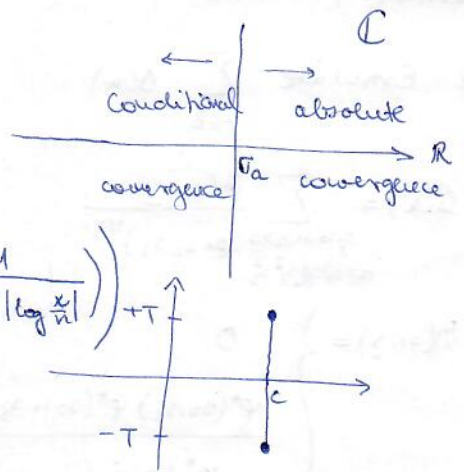 ℂ
← →
conditional absolute
ℝ
σₐ
convergence convergence
1
|log x/n| ))
+T
c
-T